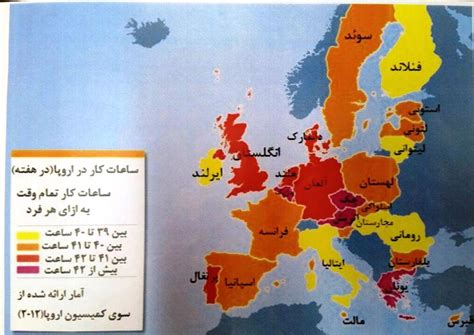 سوئد
فنلاند
استونی
لتونی
لیتوانی
دانمارک
انگلستان
ایرلند
هلند
آلمان
لهستان
چک
اسلواکی
اتریش
مجارستان
فرانسه
رومانی
بلغارستان
ایتالیا
اسپانیا
پرتغال
یونان
مالت
قبرس
ساعات کار در اروپا(در هفته)
ساعات کار تمام وقت
به ازای هر فرد
بین ۳۹ تا ۴۰ ساعت
بین ۴۰ تا ۴۱ ساعت
بین ۴۱ تا ۴۲ ساعت
بیش از ۴۲ ساعت
آمار ارائه شده از
سوی کمیسیون اروپا(۲۰۱۲)